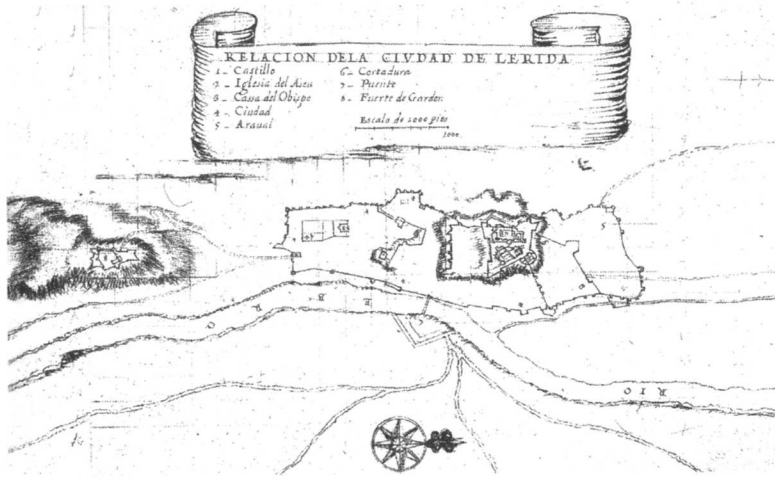 RELACION DELA CIVDAD DE LERIDA
1_ Castillo
2_ Iglesia del
3_ Cassa del Obispo
4_ Ciudad
5_ Araual
6_ Cortadura
7_ Puente
8_ Fuerte de Garden
Escala de 2000 pies
1000
RIO
E B R O